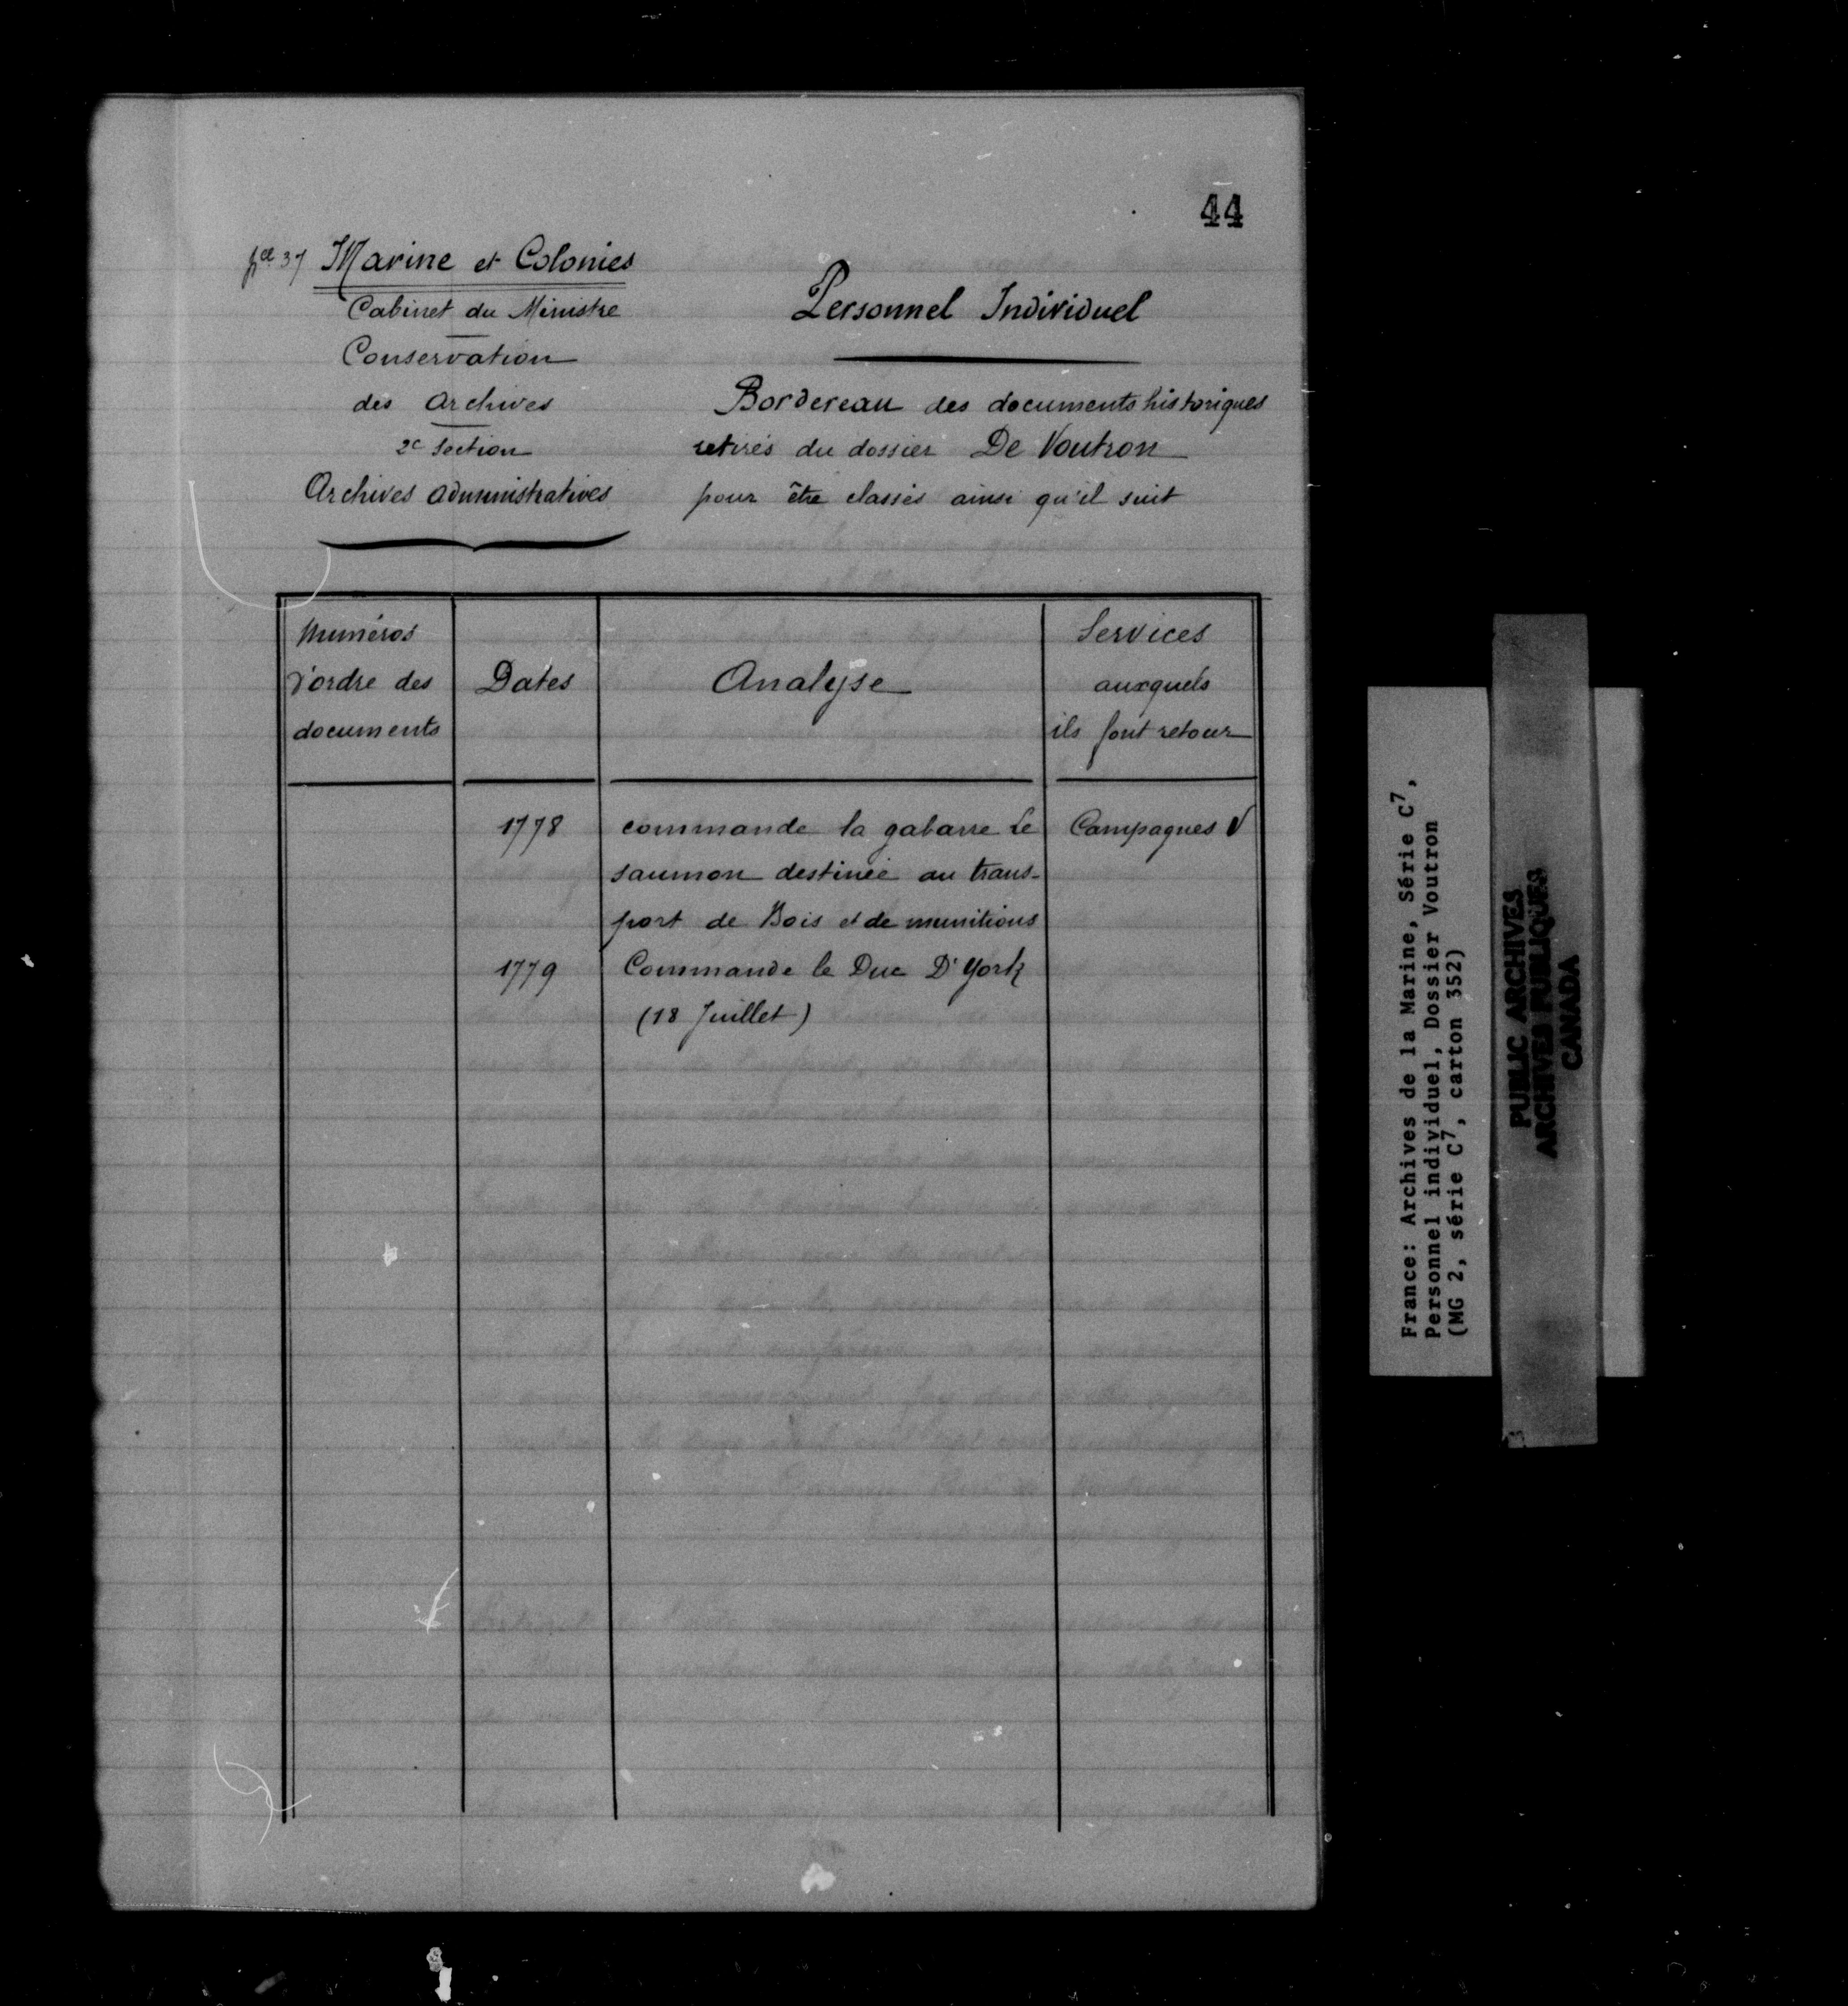 44
pce 37 Marine et Colonies
Cabinet du Ministre
Conservation
des Archives
2e Section
Archives administratives
Personnel Individuel
Bordereau des documents historiques
retirés du dossier De Voutron
pour être classés ainsi qu'il suit
Numéros
d'ordre des
documents
Dates
Analyse
Services
auxquels
ils font retour
1778
commande la gabarre Le
saumon destinée au trans-
port de Bois et de munitions
Campagnes V
1779
Commande le Duc D'York
(18 Juillet)
France: Archives de la Marine, Série C7,
Personnel individuel, Dossier Voutron
(MG 2, série C7, carton 352)
PUBLIC ARCHIVES
ARCHIVES PUBLIQUES
CANADA